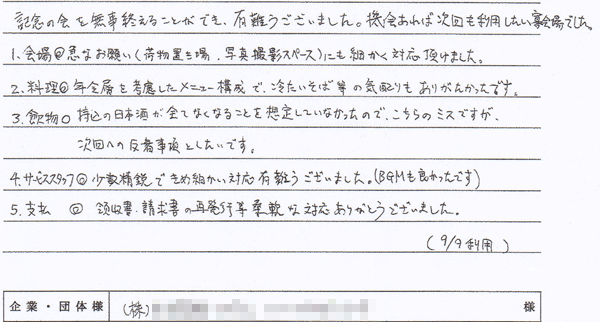 記念の会を無事終えることができ、有難うございました。機会あれば次回も利用したい宴会場でした。
1. 会場◎急なお願い(荷物置き場、写真撮影スペース)にも細かく対応頂けました。
2. 料理◎年令層を考慮したメニュー構成で、冷たいそば等の気配りもありがたかったです。
3. 飲物○ 持込の日本酒が全てなくなることを想定していなかったので、こちらのミスですが、
次回への反省事項としたいです。
4. サービススタッフ◎少数精鋭できめ細かい対応有難うございました。(BGMも良かったです)
5. 支払 ◎ 領収書・請求書の再発行等柔軟な対応ありがとうございました。
(9/9利用)
企業・団体様 (株) 様